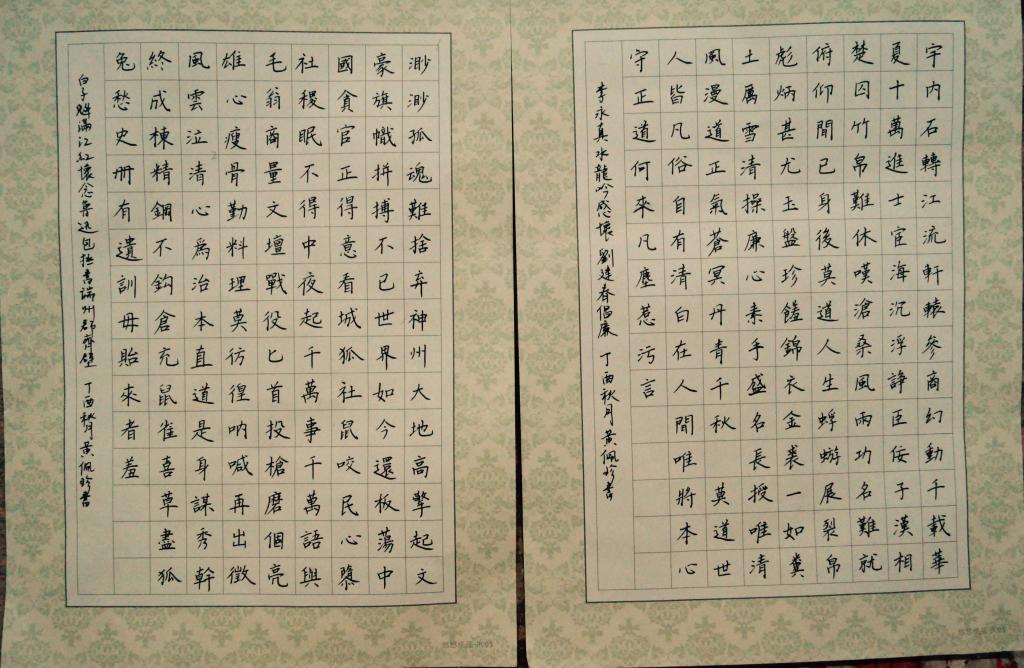 宇内石轉江流軒轅參商幻動千載華
夏十萬進士宦海沉浮諍臣佞子漢相
楚囚竹帛難休嘆滄桑風雨功名難就
俯仰間已身後莫道人生蜉蝣展裂帛
彪炳甚尤玉盤珍饈錦衣金裘一如糞
土厲雪清操廉心素手盛名長授唯清
風漫道正氣蒼冥丹青千秋 莫道世
人皆凡俗自有清白在人間唯將本心
守正道何來凡塵惹污言
李永真水龍吟感懷 劉建春倡廉 丁酉秋月黃佩珍書
渺渺孤魂難捨弃神州大地高擎起文
豪旗幟拼搏不已世界如今還板蕩中
國貪官正得意看城狐社鼠咬民心隳
社稷眠不得中夜起千萬事千萬語與
毛翁商量文壇戰役匕首投槍磨個亮
雄心瘦骨勤料理莫彷徨吶喊再出徵
風雲泣清心爲治本直道是身謀秀幹
終成棟精鋼不鈎倉充鼠雀喜草盡狐
兔愁史册有遺訓毋貽來者羞
白子超滿江紅懷念魯迅包拯書端州郡齊壁 丁酉秋月黃佩珍書